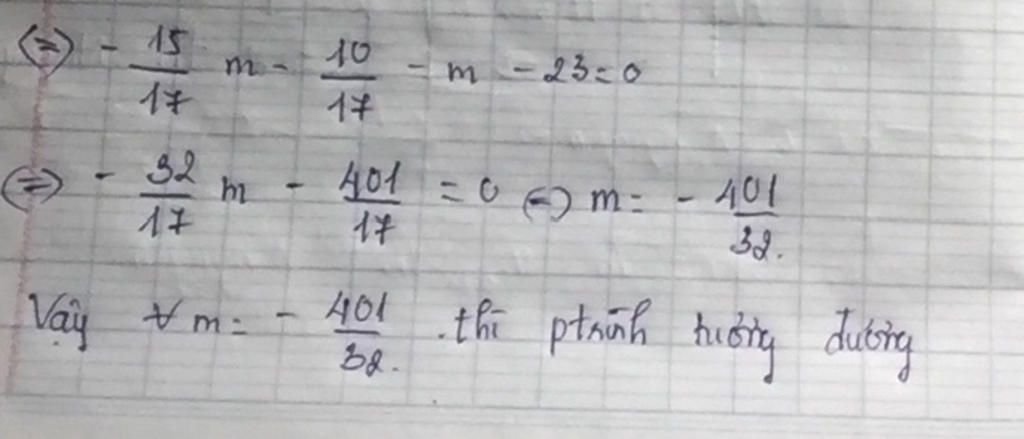 ⇔ - 15/17 m - 10/17 - m - 23 = 0
⇔ - 32/17 m - 401/17 = 0 ⇔ m = - 401/32.
Vậy ∀ m = - 401/32 . thì ptrình tương đương